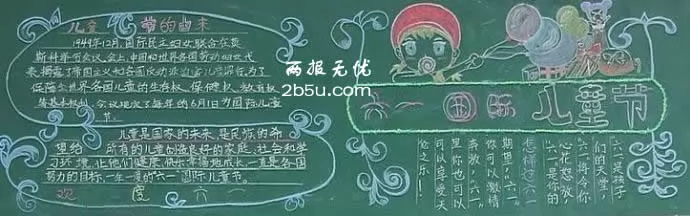 儿童节的由来
1949年12月,国际民主妇女联合在莫
斯科举行会议,会上,中国和世界各国劳动妇女代
表,揭露了帝国主义和各国反动派
保障全世界各国儿童的生存权、保健权、教育权
会议决定了每年的6月1日为国际儿童
节。
儿童是国家的未来,是民族的希
望。给所有的儿童创造良好的家庭、社会和学
习环境,让他们健康、快乐、幸福地成长,一直是各国
努力的目标,一年一度的“六一”国际儿童节。
欢度六一
两报无忧
2b5u.com
六一国际儿童节
六一是孩子
们的天堂,
六一将令你
心花怒放,
六一是你的
怎样过六一
期望,六一
你可以激情
奔放,六一
里你也可以
可以享受天
伦之乐!